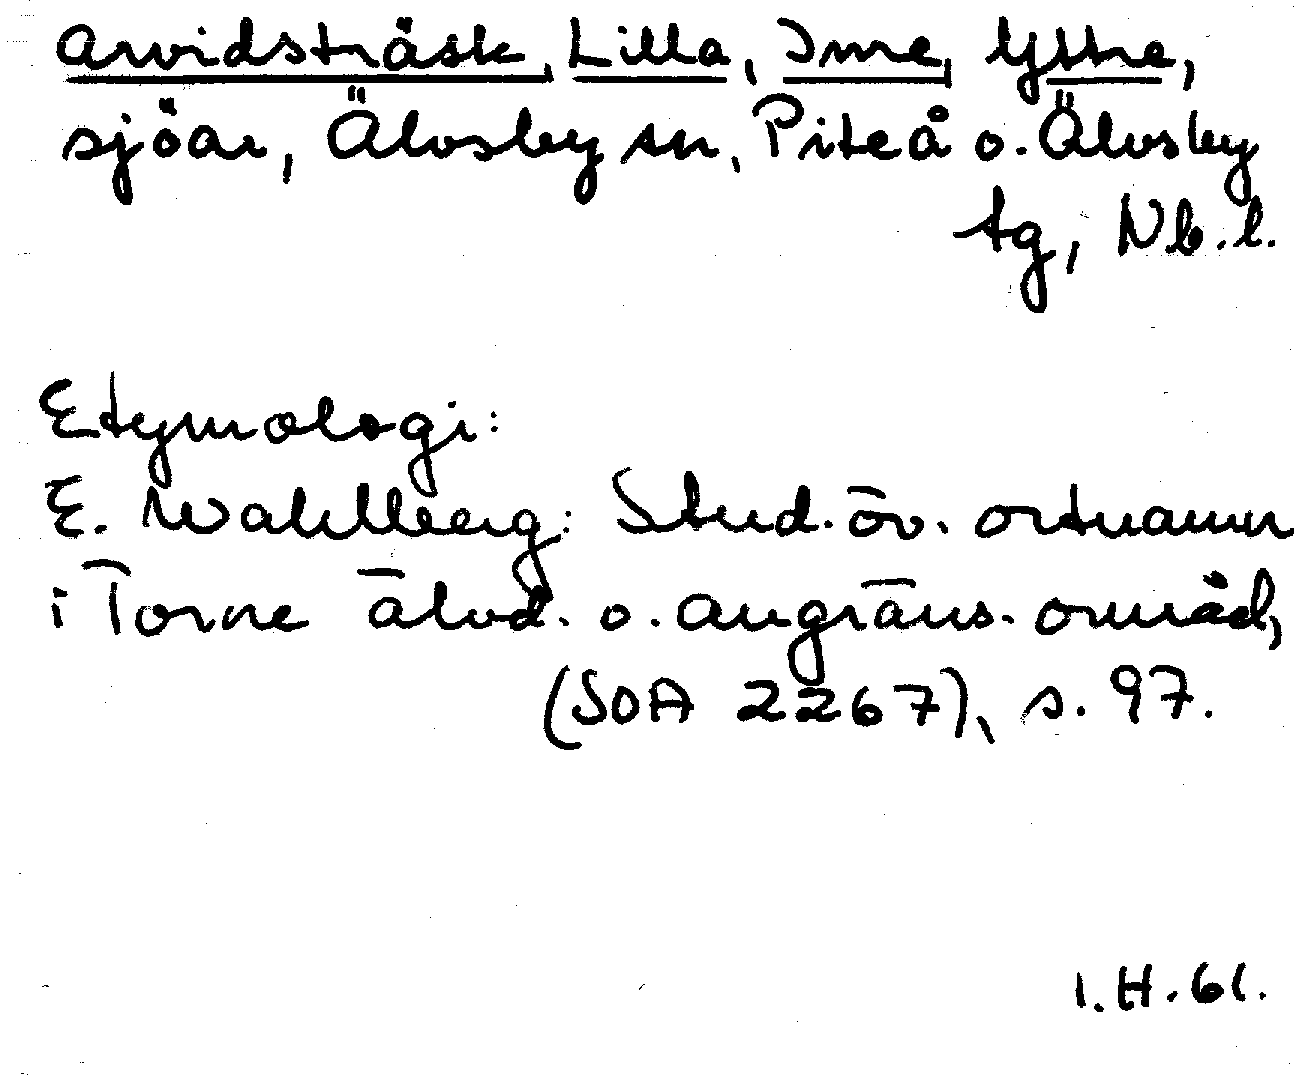 Arvidsträsk, Lilla, Inre, Yttre,
sjöar, Älvsby sn, Piteå o. Älvsby
tg, Nb. l.
Etymologi:
E. Wahlberg: Stud. öv. ortnamn
i Torne älvd. o. angräns. områd,
(SOA 2267), s. 97.
I. H. 61.